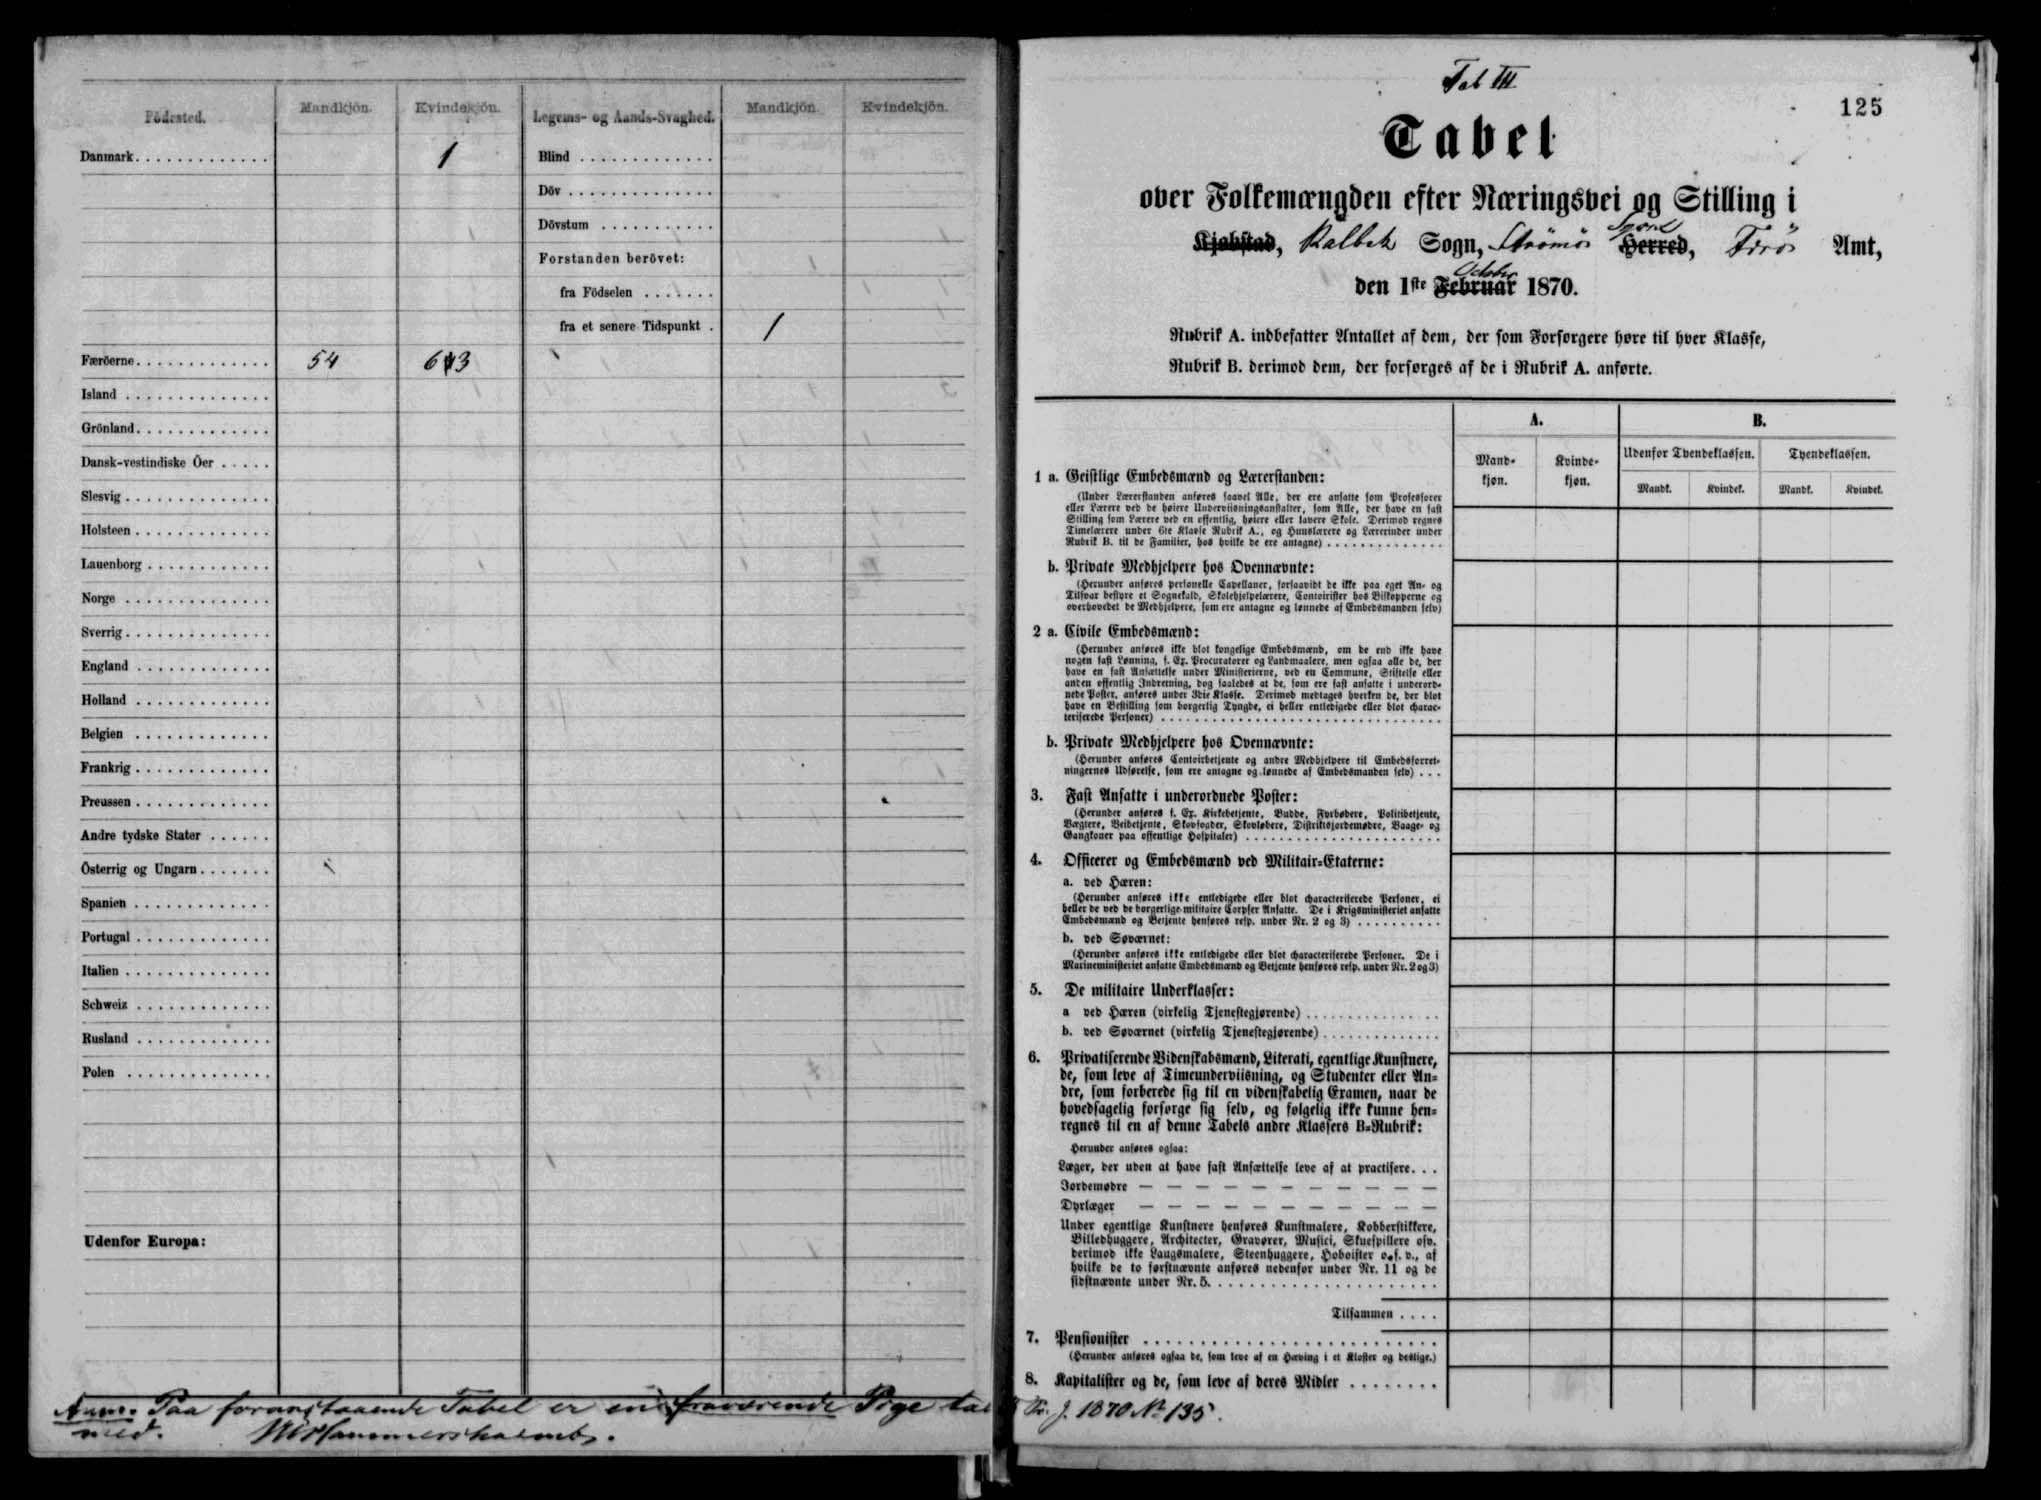 Födested. Mandkjön. Kvindekjön. Legems- og Aands-Svaghed. Mandkjön. Kvindekjön.
Danmark. . . . . . . . . . . . . 1 Blind . . . . . . . . . . . . .
Döv . . . . . . . . . . . . . .
Dövstum . . . . . . . . . . .
Forstanden berövet:
fra Födselen . . . . . . .
fra et senere Tidspunkt . 1
Færöerne. . . . . . . . . . . . . 54 63
Island . . . . . . . . . . . . . .
Grönland. . . . . . . . . . . . .
Dansk-vestindiske Öer . . . . .
Slesvig . . . . . . . . . . . . . .
Holsteen . . . . . . . . . . . . .
Lauenborg . . . . . . . . . . . .
Norge . . . . . . . . . . . . . .
Sverrig . . . . . . . . . . . . . .
England . . . . . . . . . . . . .
Holland . . . . . . . . . . . . .
Belgien . . . . . . . . . . . . .
Frankrig . . . . . . . . . . . . .
Preussen . . . . . . . . . . . . .
Andre tydske Stater . . . . . .
Österrig og Ungarn . . . . . . .
Spanien . . . . . . . . . . . . .
Portugal . . . . . . . . . . . . .
Italien . . . . . . . . . . . . . .
Schweiz . . . . . . . . . . . . .
Rusland . . . . . . . . . . . . .
Polen . . . . . . . . . . . . . .
Udenfor Europa:
Anm. Paa foranstaaende Tabel er en fraværende Pige
med. Hammershaimb.
Tab III
125
Tabel
over Folkemængden efter Næringsvei og Stilling i
Kjøbstad, Kalbak Sogn, Strømø Syssel Herred, Færø Amt,
den 1ste Octobr Februar 1870.
Rubrik A. indbefatter Antallet af dem, der som Forsørgere høre til hver Klasse,
Rubrik B. derimod dem, der forsørges af de i Rubrik A. anførte.
A. B.
Mandkjøn. Kvindekjøn. Udenfor Tyendeklassen. Tyendeklassen.
Mandk. Kvindek. Mandk. Kvindek.
1 a. Geistlige Embedsmænd og Lærerstanden:
(Under Lærerstanden anføres saavel Alle, der ere ansatte som Professorer
eller Lærere ved de høiere Underviisningsanstalter, som Alle, der have en fast
Stilling som Lærere ved en offentlig, høiere eller lavere Skole. Derimod regnes
Timelærere under 6te Klasse Rubrik A., og Huuslærere og Lærerinder under
Rubrik B. til de Familier, hos hvilke de ere antagne) . . . . . . . . . . . . . .
b. Private Medhjelpere hos Ovennævnte:
(Herunder anføres personelle Capellaner, forsaavidt de ikke paa eget An- og
Tilsvar bestyre et Sognekald, Skolehjelpelærere, Contoirister hos Biskopperne og
overhovedet de Medhjelpere, som ere antagne og lønnede af Embedsmanden selv)
2 a. Civile Embedsmænd:
(Herunder anføres ikke blot kongelige Embedsmænd, om de end ikke have
nogen fast Lønning, f. Ex. Procuratorer og Landmaalere, men ogsaa alle de, der
have en fast Ansættelse under Ministerierne, ved en Commune, Stiftelse eller
anden offentlig Indretning, dog saaledes at de, som ere fast ansatte i underord-
nede Poster, anføres under 3die Klasse. Derimod medtages hverken de, der blot
have en Bestilling som borgerlig Tyngde, ei heller entledigede eller blot charac-
teriserede Personer) . . . . . . . . . . . . . . . . . . . . . . . . . . . . . . .
b. Private Medhjelpere hos Ovennævnte:
(Herunder anføres Contoirbetjente og andre Medhjelpere til Embedsforret-
ningernes Udførelse, som ere antagne og lønnede af Embedsmanden selv) . . .
3. Fast Ansatte i underordnede Poster:
(Herunder anføres f. Ex. Kirkebetjente, Budde, Fyrbødere, Politibetjente,
Vægtere, Veibetjente, Skovfogder, Skovløbere, Distriktsjordemødre, Vaage- og
Gangkoner paa offentlige Hospitaler) . . . . . . . . . . . . . . . . . . . . . . .
4. Officerer og Embedsmænd ved Militair-Etaterne:
a. ved Hæren:
(Herunder anføres ikke entledigede eller blot characteriserede Personer, ei
heller de ved de borgerlige militaire Corpser Ansatte. De i Krigsministeriet ansatte
Embedsmænd og Betjente henføres resp. under Nr. 2 og 3) . . . . . . . . . .
b. ved Søværnet:
(Herunder anføres ikke entledigede eller blot characteriserede Personer. De i
Marineministeriet ansatte Embedsmænd og Betjente henføres resp. under Nr. 2 og 3)
5. De militaire Underklasser:
a ved Hæren (virkelig Tjenestegjørende) . . . . . . . . . . . . . . . .
b. ved Søværnet (virkelig Tjenestegjørende) . . . . . . . . . . . . . .
6. Privatiserende Videnskabsmænd, Literati, egentlige Kunstnere,
de, som leve af Timeunderviisning, og Studenter eller An-
dre, som forberede sig til en videnskabelig Examen, naar de
hovedsagelig forsørge sig selv, og følgelig ikke kunne hen-
regnes til en af denne Tabels andre Klassers B-Rubrik:
Herunder anføres ogsaa:
Læger, der uden at have fast Ansættelse leve af at practisere. . .
Jordemødre — — — — — — — — — —
Dyrlæger — — — — — — — — — —
Under egentlige Kunstnere henføres Kunstmalere, Kobberstikkere,
Billedhuggere, Architecter, Gravører, Musici, Skuespillere osv.
derimod ikke Laugsmalere, Steenhuggere, Hoboister o. s. v., af
hvilke de to førstnævnte anføres nedenfor under Nr. 11 og de
sidstnævnte under Nr. 5. . . . . . . . . . . . . . . . . . . . . .
Tilsammen . . . .
7. Pensionister . . . . . . . . . . . . . . . . . . . . . . . . .
(Herunder anføres ogsaa de, som leve af en Hæving i et Kloster og deslige.)
8. Kapitalister og de, som leve af deres Midler . . . . . . . .
J. 1870 No 135.